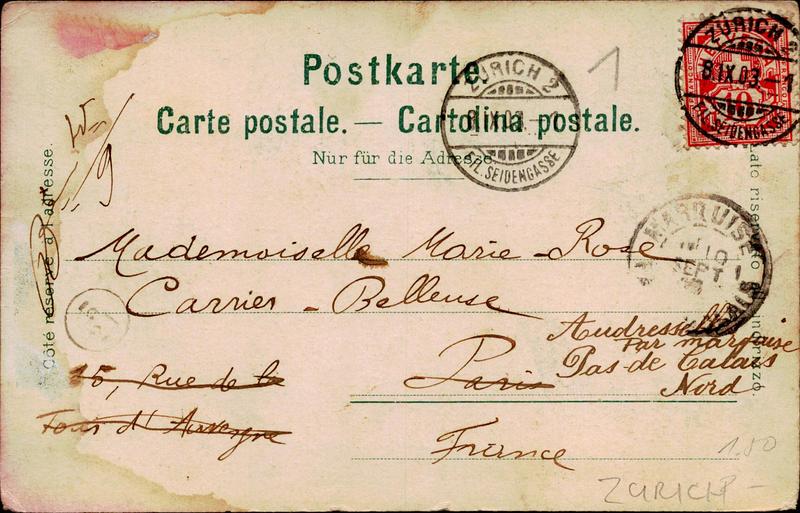 Postkarte.
Carte postale. — Cartolina postale.
Nur für die Adresse.
ZÜRICH 2
8.IX.03.-1
FIL. SEIDENGASSE
1
ZÜRICH 2
8.IX.03.-1
FIL. SEIDENGASSE
10
Côté réservé à l'adresse.
Lato riservato all'indirizzo.
MARQUISE
10
SEPT
Mademoiselle Marie-Rose
Carrier-Belleuse
Audresselles
par marquise
15, Rue de la
Paris
Pas-de Calais
Nord
Tour d'Auvergne
France
1.50
ZÜRICH